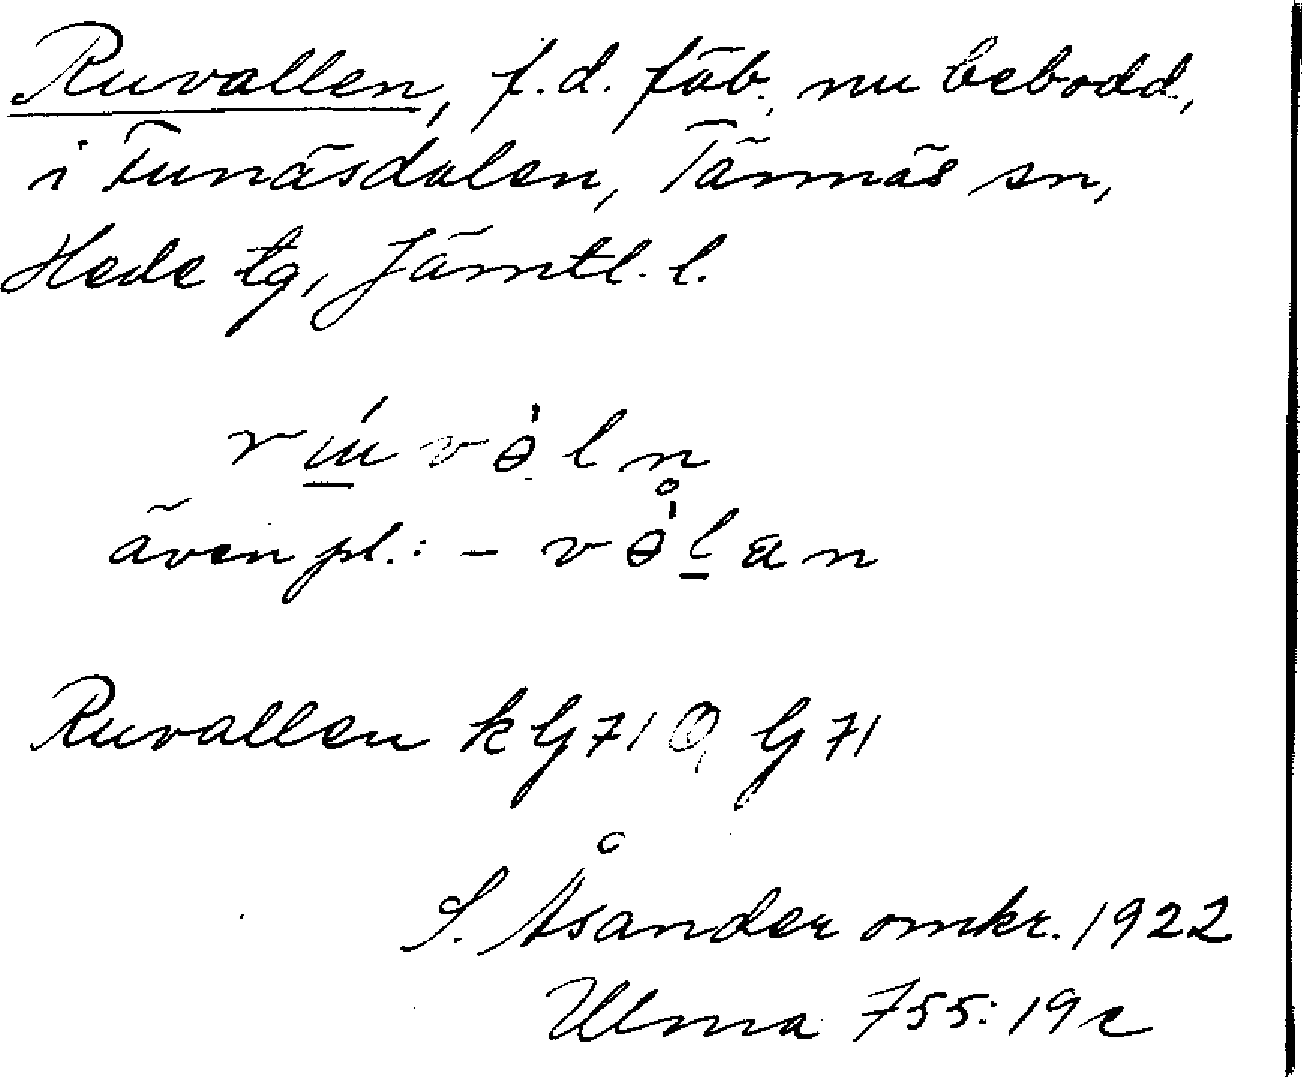 Ruvallen, f.d. fäb. nu bebodd,
i Funäsdalen, Tännäs sn,
Hede tg, Jämtl. l.
även pl.: -
Ruvallen k G 71 Ö, G 71
S. Åsander omkr. 1922
Ulma 755: 19 c